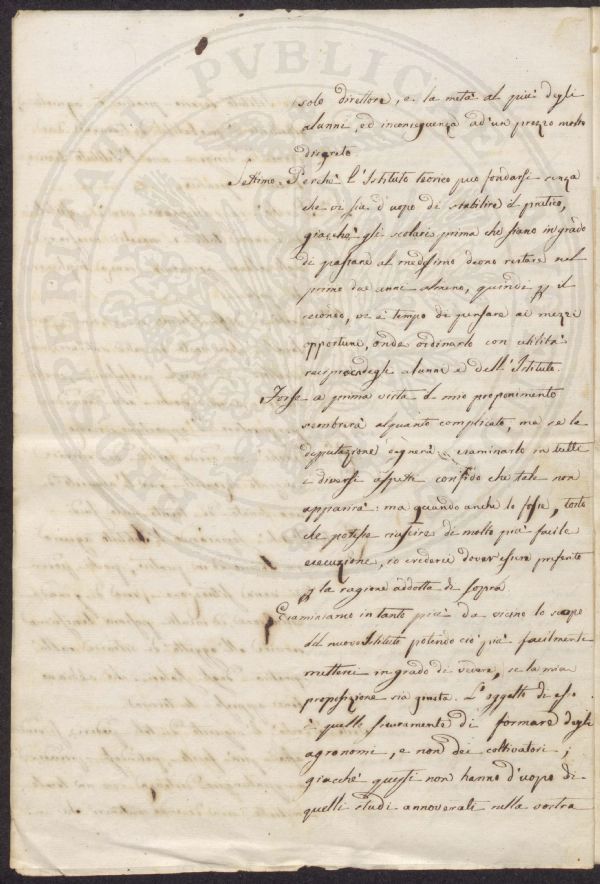 solo direttore, e la metà al più degli
alunni, ed in conseguenza ad un prezzo molto
discreto
Settimo. Perchè l'Istituto teorico può fondarsi senza
che vi sia d'uopo di stabilire il pratico,
giacchè gli scolari prima che siano in grado
di passare al medesimo deono restare nel
primo due anni almeno, quindi p il
secondo, vi è tempo di pensare ai mezzi
opportuni, onde ordinarlo con utilità
reciproca degli alunni e dell'Istituto.
Forse a prima vista il mio proponimento
sembrerà alquanto complicato, ma se la
deputazione degnerà esaminarlo in tutti
i diversi aspetti confido che tale non
apparirà: ma quando anche lo fosse, tosto
che potesse riuscire di molto più facile
esecuzione, io crederei dover essere preferito
p la ragione addotta di sopra
Esaminiamo in tanto più da vicino lo scopo
del nuovo Istituto potendo ciò più facilmente
metterci in grado di vedere, se la mia
proposizione sia giusta. L'oggetto di esso
è quello sicuramente di formare degli
agronomi, e non dei coltivatori;
giacchè questi non hanno d'uopo di
quelli studi annoverati nella vostra
PUBLICAE